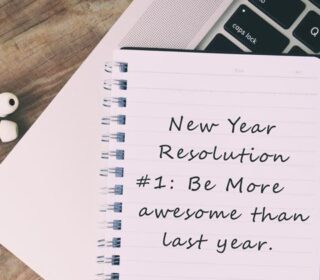 caps lock
New Year
Resolution
#1: Be More
awesome than
last year.